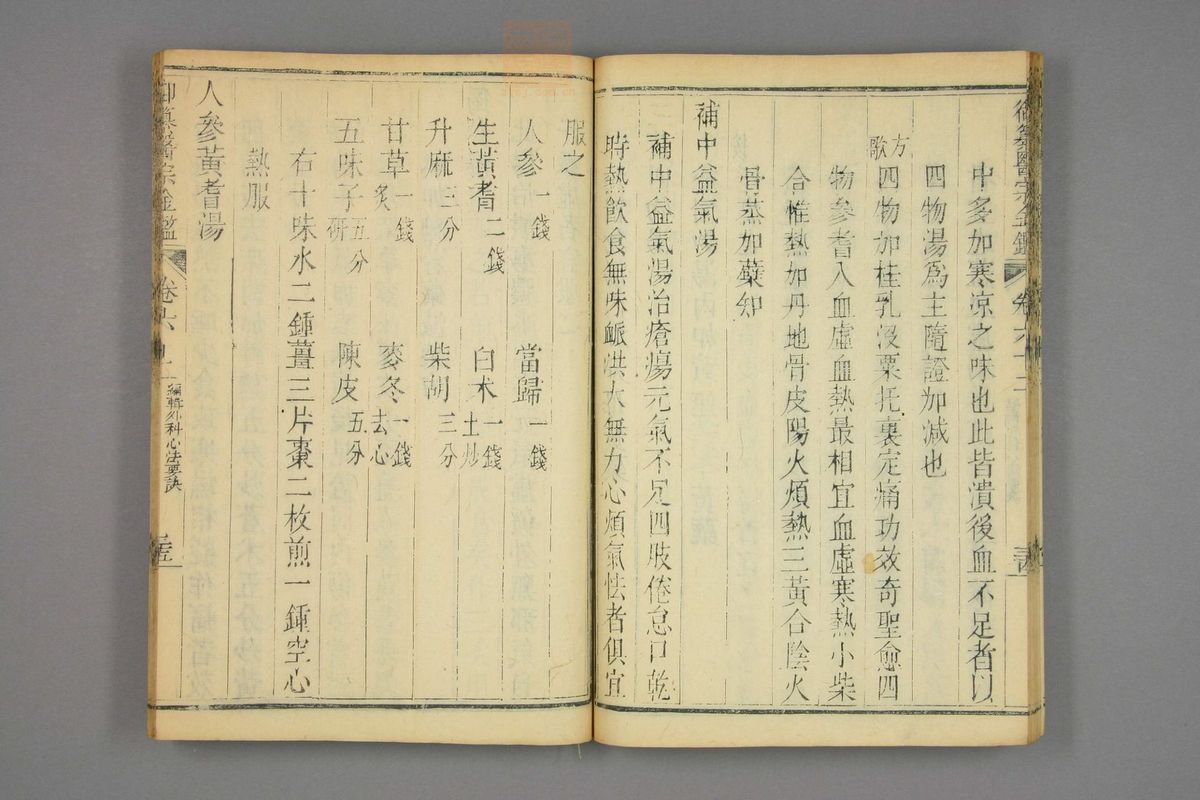 御纂醫宗金鑑 卷六十二
中多加寒凉之味也此皆潰後血不足者以
四物湯爲主隨證加減也
方歌
四物加桂乳沒粟托裏定痛功效奇聖愈四
物參耆入血虛血熱最相宜血虛寒熱小柴
合惟熱加丹地骨皮陽火煩熱三黃合陰火
骨蒸加蘗知
補中益氣湯
補中益氣湯治瘡瘍元氣不足四肢倦怠口乾
時熱飲食無味脈洪大無力心煩氣怯者俱宜
服之
人參一錢 當歸一錢
生黃耆二錢 白朮土炒一錢
升麻三分 柴胡三分
甘草炙一錢 麥冬去心一錢
五味子研五分 陳皮五分
右十味水二鍾薑三片棗二枚煎一鍾空心
熱服
人參黃耆湯
御纂醫宗金鑑 卷六
編輯外科心法要訣